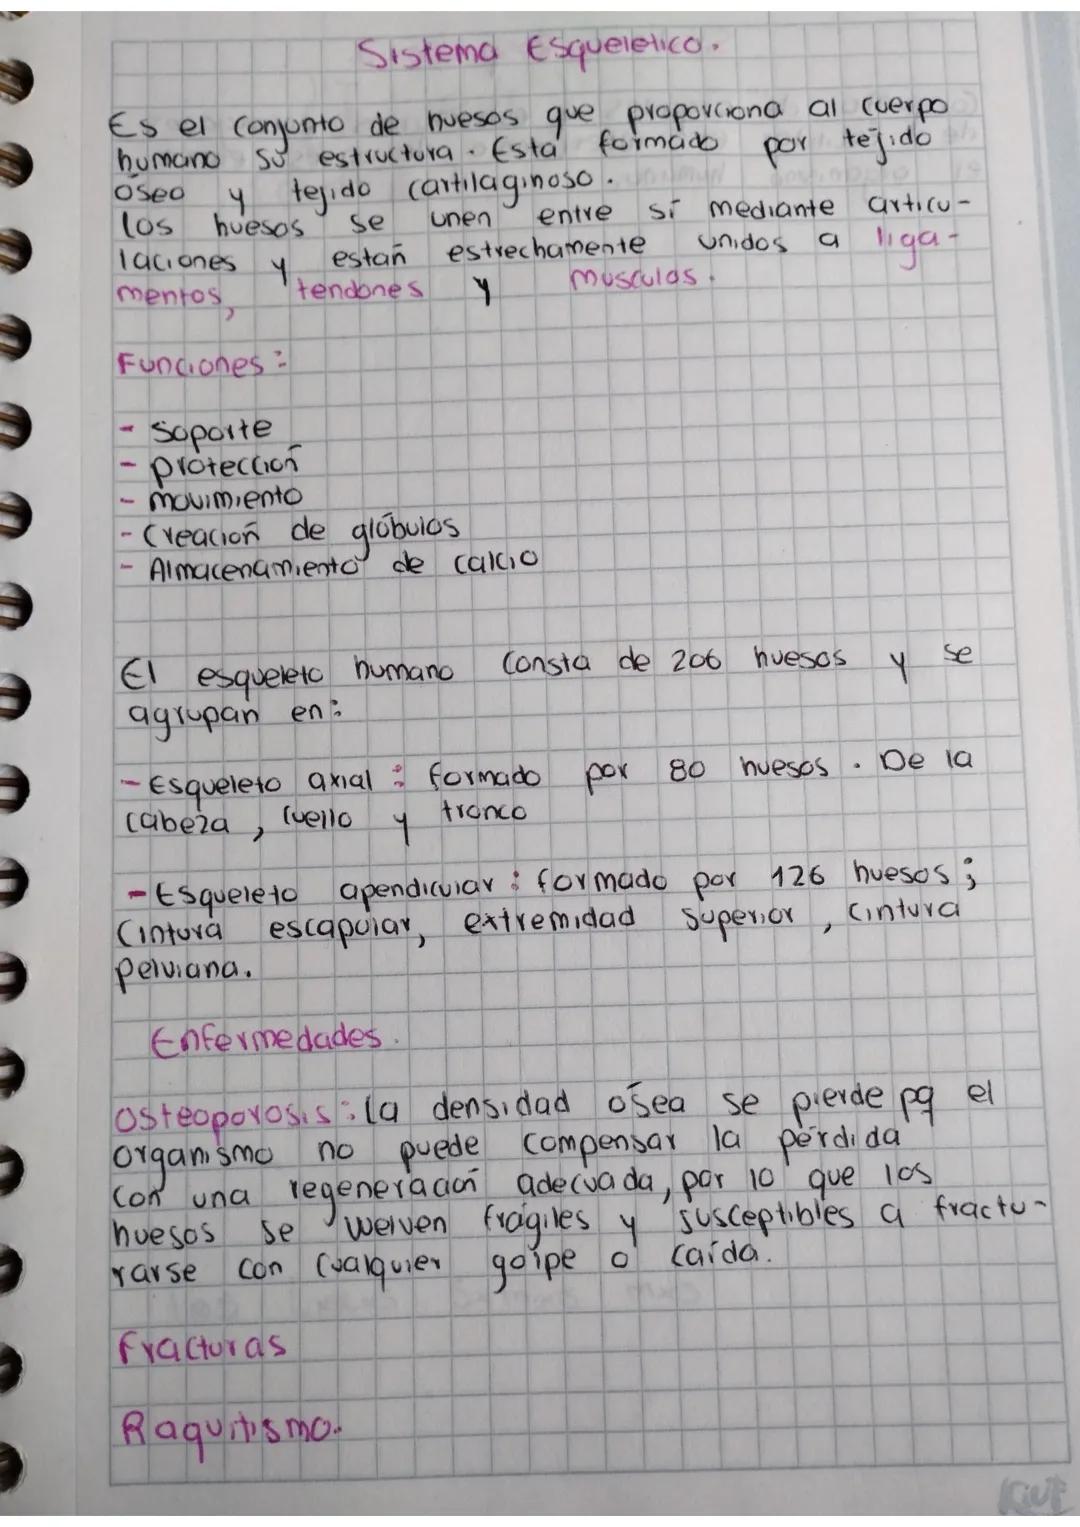 Sistema Esqueletico.
Es el conjunto de huesos que proporciona al cuerpo
humano su estructura. Está formado por téjido
óseo y tejido cartilaginoso.
los huesos se unen entre sí mediante articu-
laciones y están estrechamente unidos a liga-
mentos, tendones y musculos.
Funciones:
- soporte
- protección
- movimiento
- Creación de glóbulos
- Almacenamiento de calcio
El esqueleto humano consta de 206 huesos y se
agrupan en:
- Esqueleto axial: formado por 80 huesos. De la
cabeza, cuello y tronco
- Esqueleto apendicular: formado por 126 huesos;
Cintura escapular, extremidad superior, cintura
pelviana.
Enfermedades.
Osteoporosis: la densidad ósea se pierde pq el
organismo no puede compensar la pérdida
con una regeneración adecuada, por lo que los
huesos se vuelven frágiles y susceptibles a fractu-
rarse con cualquier golpe o caída.
Fracturas
Raquitismo.